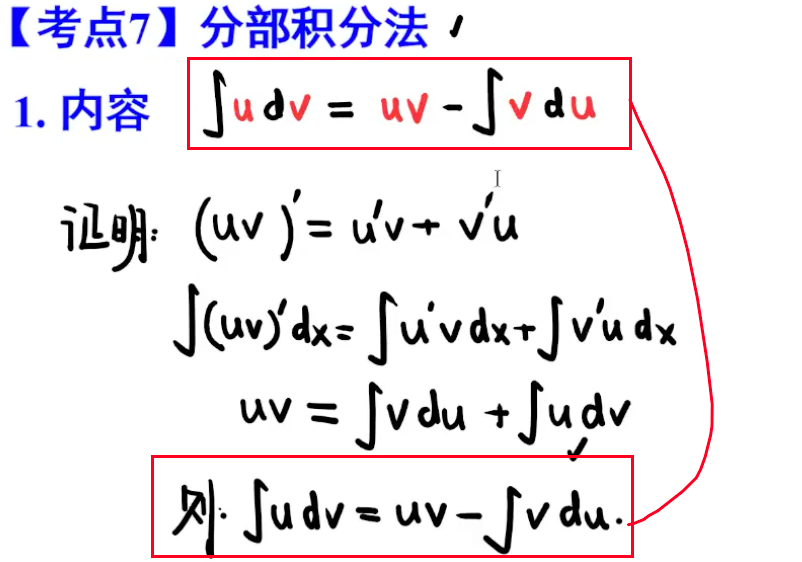 【考点7】分部积分法
1. 内容 ∫udv = uv - ∫vdu
证明: (uv)' = u'v + v'u
∫(uv)'dx = ∫u'vdx + ∫v'udx
uv = ∫vdu + ∫udv
则: ∫udv = uv - ∫vdu.